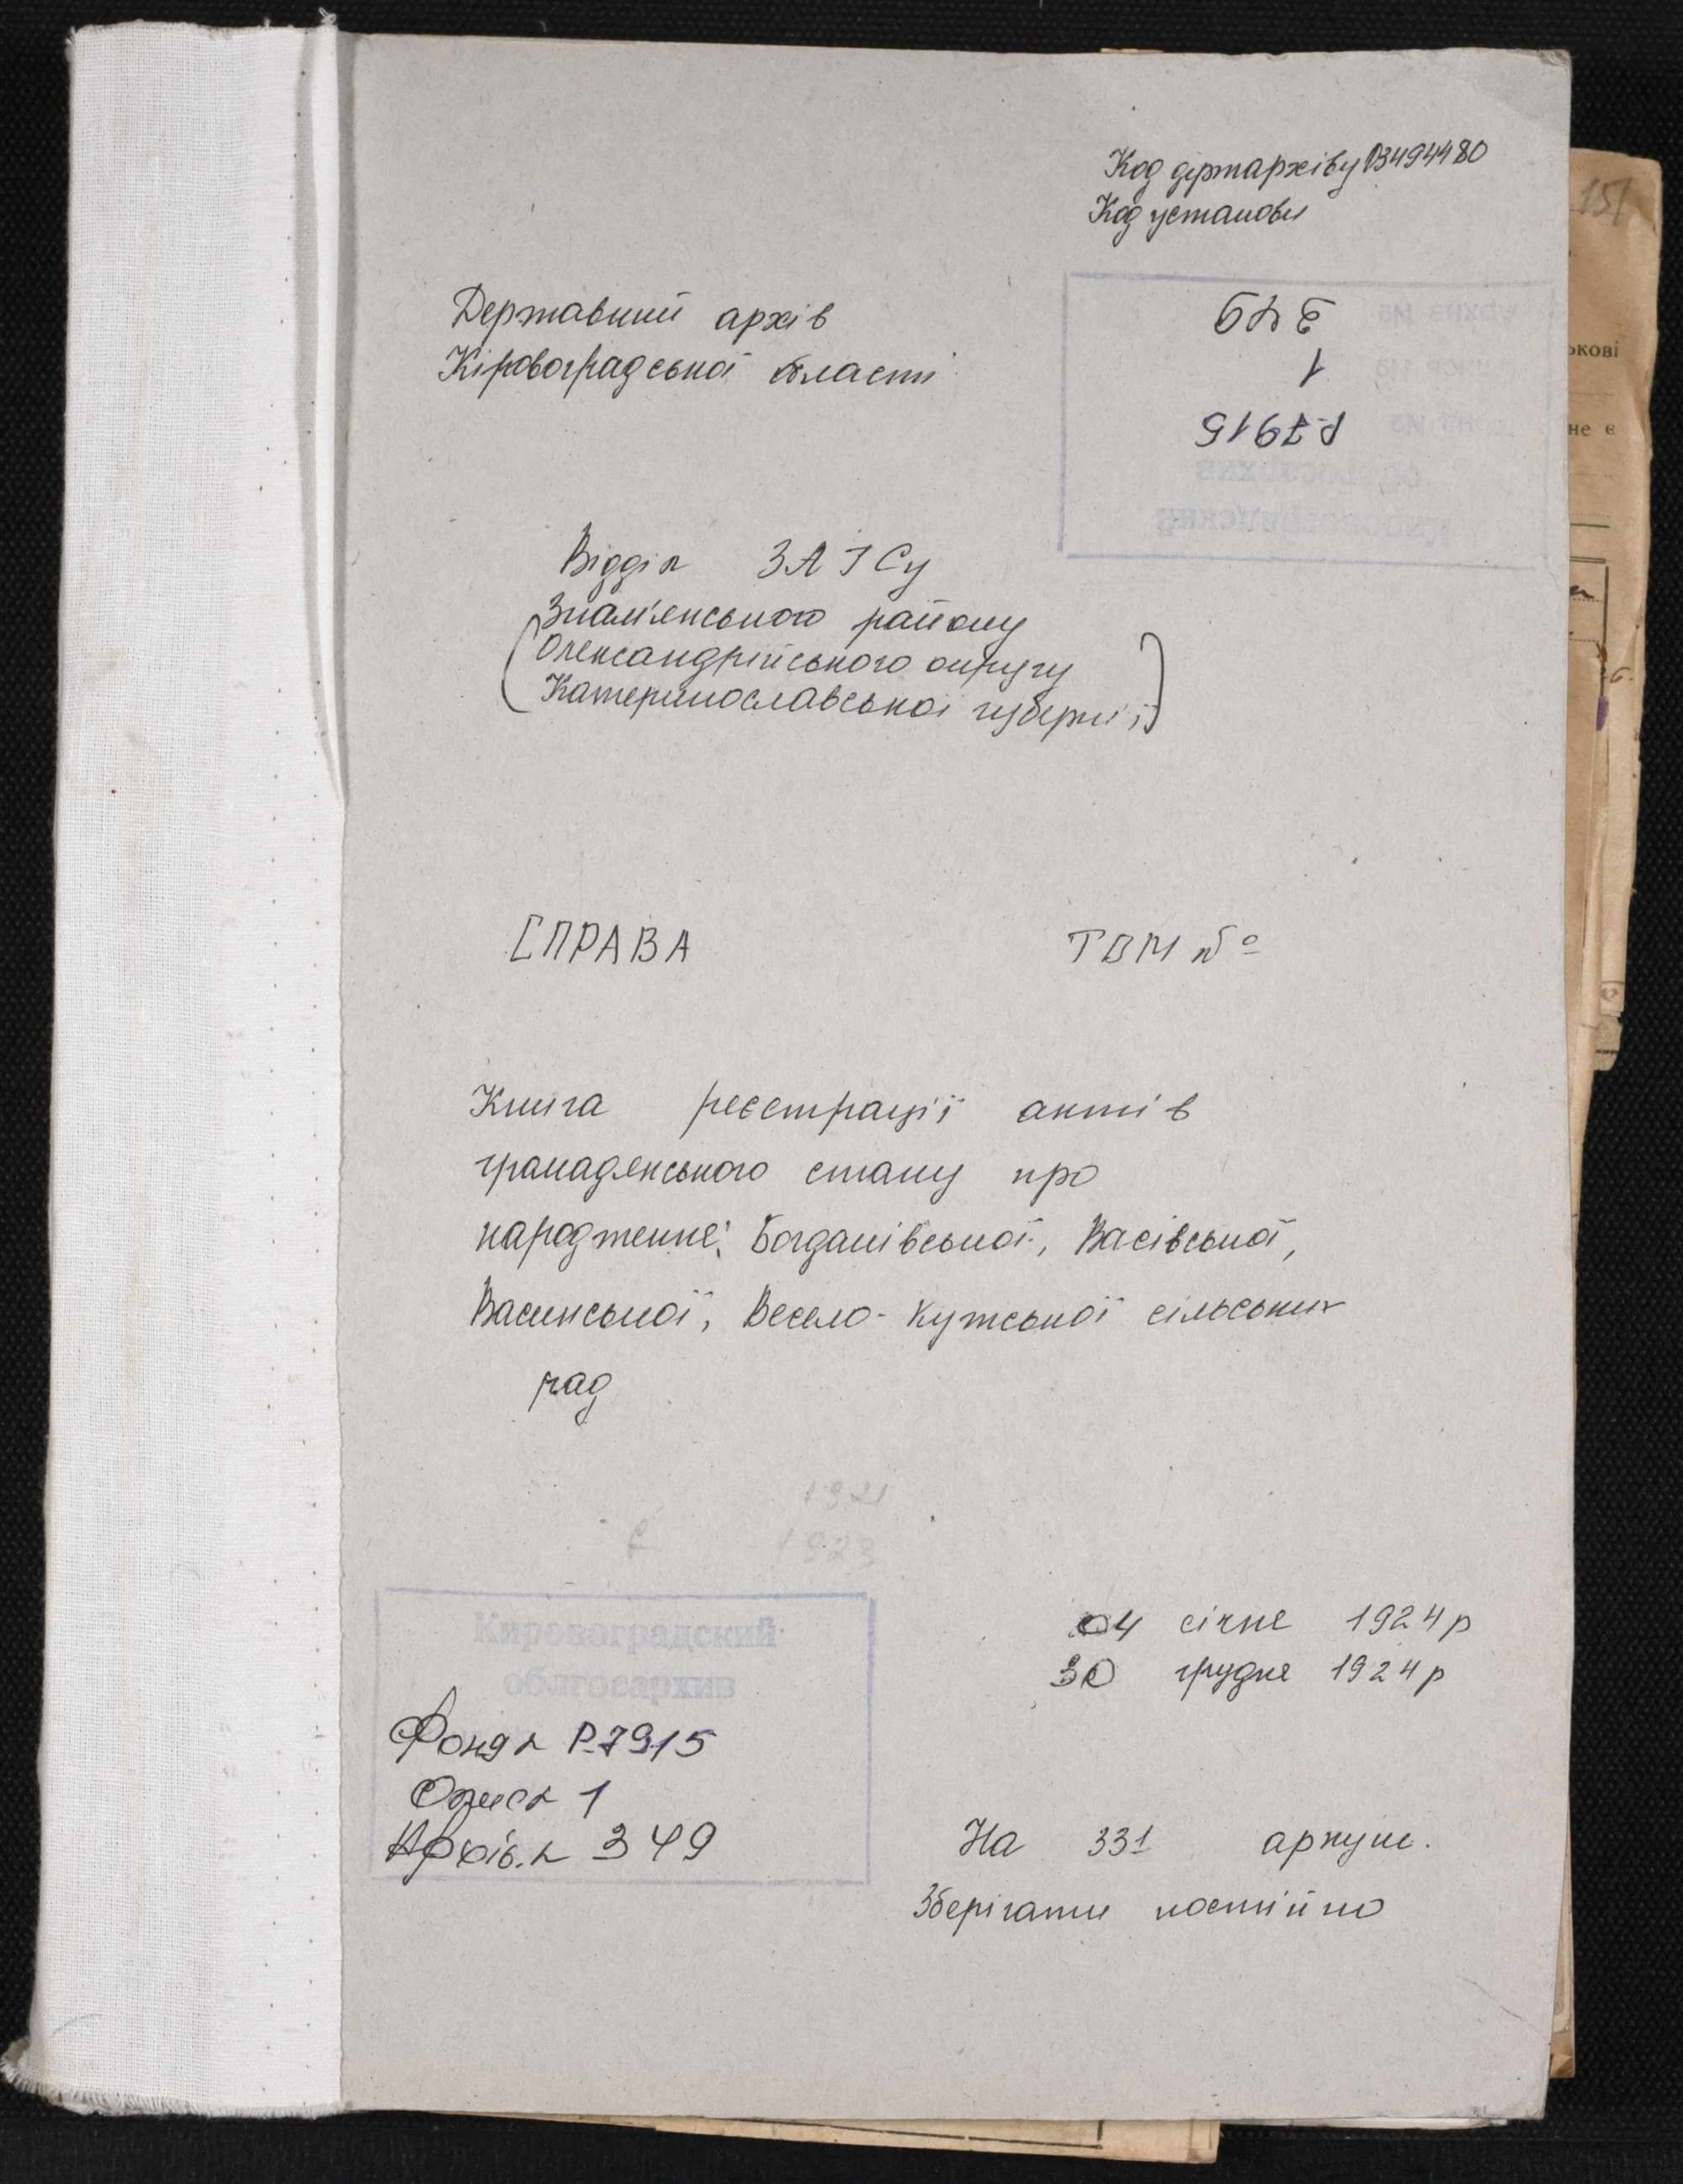 Код держархіву 03494480
Код установи
Державний архів
Кіровоградської області
349
1
Р-7915
Відділ ЗАГСу
Знам'янського району
(Олександрійського округу
Катеринославської губернії)
СПРАВА ТОМ №
Книга реєстрації актів
громадянського стану про
народження: Богданівської, Васівської,
Васинської, Весело-Кутської сільських
рад
1921
1923
04 січня 1924 р
30 грудня 1924 р
Кировоградский
облгосархив
Фонд № Р-7915
Опис № 1
Архів. № 349
На 331 аркуш.
Зберігати постійно
151
ькові
не є